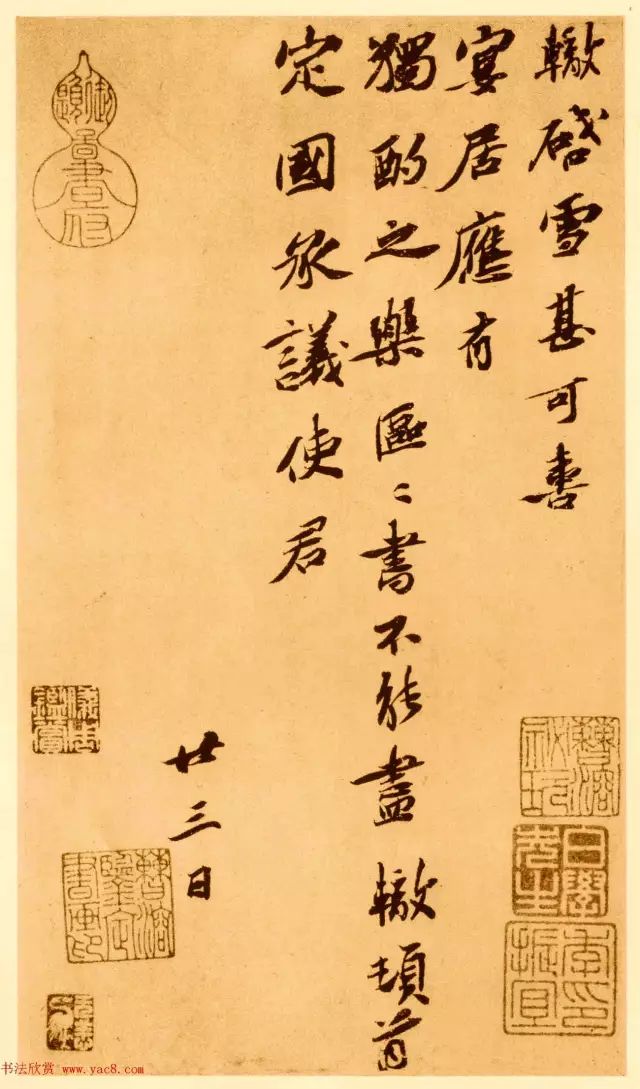 轍啓雪甚可喜
宴居應有
獨酌之樂區〻書不能盡 轍頓首
定國承議使君
廿三日
儀周鑑賞
書法欣賞 www.yac8.com